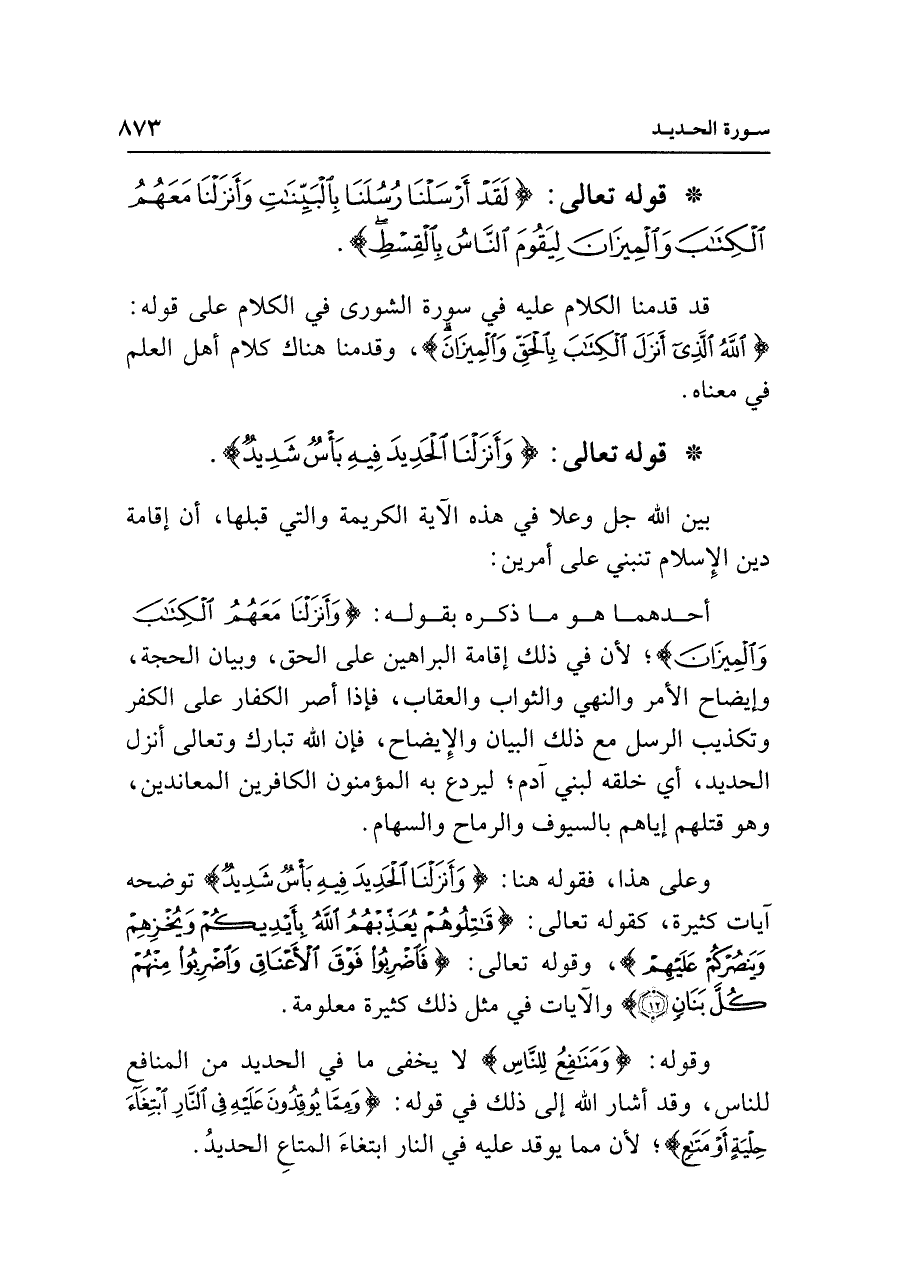 سورة الحديد ٨٧٣
* قوله تعالى: ﴿لَقَدْ أَرْسَلْنَا رُسُلَنَا بِالْبَيِّنَاتِ وَأَنزَلْنَا مَعَهُمُ
الْكِتَابَ وَالْمِيزَانَ لِيَقُومَ النَّاسُ بِالْقِسْطِ﴾.
قد قدمنا الكلام عليه في سورة الشورى في الكلام على قوله:
﴿اللَّهُ الَّذِي أَنزَلَ الْكِتَابَ بِالْحَقِّ وَالْمِيزَانَ﴾، وقدمنا هناك كلام أهل العلم
في معناه.
* قوله تعالى: ﴿وَأَنزَلْنَا الْحَدِيدَ فِيهِ بَأْسٌ شَدِيدٌ﴾.
بين الله جل وعلا في هذه الآية الكريمة والتي قبلها، أن إقامة
دين الإسلام تنبني على أمرين:
أحدهما هو ما ذكره بقوله: ﴿وَأَنزَلْنَا مَعَهُمُ الْكِتَابَ
وَالْمِيزَانَ﴾؛ لأن في ذلك إقامة البراهين على الحق، وبيان الحجة،
وإيضاح الأمر والنهي والثواب والعقاب، فإذا أصر الكفار على الكفر
وتكذيب الرسل مع ذلك البيان والإيضاح، فإن الله تبارك وتعالى أنزل
الحديد، أي خلقه لبني آدم؛ ليردع به المؤمنون الكافرين المعاندين،
وهو قتلهم إياهم بالسيوف والرماح والسهام.
وعلى هذا، فقوله هنا: ﴿وَأَنزَلْنَا الْحَدِيدَ فِيهِ بَأْسٌ شَدِيدٌ﴾ توضحه
آيات كثيرة، كقوله تعالى: ﴿قَاتِلُوهُمْ يُعَذِّبْهُمُ اللَّهُ بِأَيْدِيكُمْ وَيُخْزِهِمْ
وَيَنصُرْكُمْ عَلَيْهِمْ﴾، وقوله تعالى: ﴿فَاضْرِبُوا فَوْقَ الْأَعْنَاقِ وَاضْرِبُوا مِنْهُمْ
كُلَّ بَنَانٍ ١٢﴾ والآيات في مثل ذلك كثيرة معلومة.
وقوله: ﴿وَمَنَافِعُ لِلنَّاسِ﴾ لا يخفى ما في الحديد من المنافع
للناس، وقد أشار الله إلى ذلك في قوله: ﴿وَمِمَّا يُوقِدُونَ عَلَيْهِ فِي النَّارِ ابْتِغَاءَ
حِلْيَةٍ أَوْ مَتَاعٍ﴾؛ لأن مما يوقد عليه في النار ابتغاءَ المتاعِ الحديدُ.